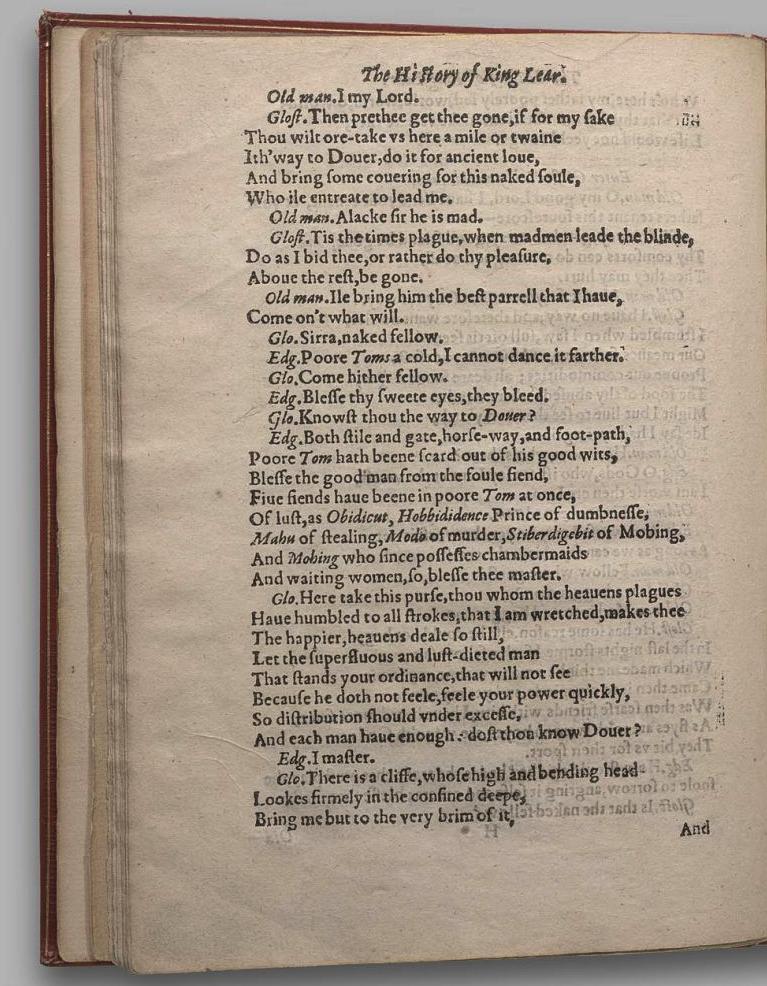 The Hiſtory of King Lear.
Old man. I my Lord.
Gloſt. Then prethee get thee gone, if for my ſake
Thou wilt ore-take vs here a mile or twaine
Ith'way to Douer, do it for ancient loue,
And bring ſome couering for this naked ſoule,
Who ile entreate to lead me.
Old man. Alacke ſir he is mad.
Gloſt. Tis the times plague, when madmen leade the blinde,
Do as I bid thee, or rather do thy pleaſure,
Aboue the reſt, be gone.
Old man. Ile bring him the beſt parrell that I haue,
Come on't what will.
Glo. Sirra, naked fellow.
Edg. Poore Toms a cold, I cannot dance it farther.
Glo. Come hither fellow.
Edg. Bleſſe thy ſweete eyes, they bleed.
Glo. Knowſt thou the way to Douer?
Edg. Both ſtile and gate, horſe-way, and foot-path,
Poore Tom hath beene ſcard out of his good wits,
Bleſſe the good man from the foule fiend,
Fiue fiends haue beene in poore Tom at once,
Of luſt, as Obidicut, Hobbididence Prince of dumbneſſe,
Mahu of ſtealing, Modo of murder, Stiberdigebit of Mobing,
And Mohing who ſince poſſeſſes chambermaids
And waiting women, ſo, bleſſe thee maſter.
Glo. Here take this purſe, thou whom the heauens plagues
Haue humbled to all ſtrokes, that I am wretched, makes thee
The happier, heauens deale ſo ſtill,
Let the ſuperfluous and luſt-dieted man
That ſtands your ordinance, that will not ſee
Becauſe he doth not feele, feele your power quickly,
So diſtribution ſhould vnder exceſſe,
And each man haue enough: doſt thou know Douer?
Edg. I maſter.
Glo. There is a cliffe, whoſe high and bending head
Lookes firmely in the confined deepe,
Bring me but to the very brim of it,
And